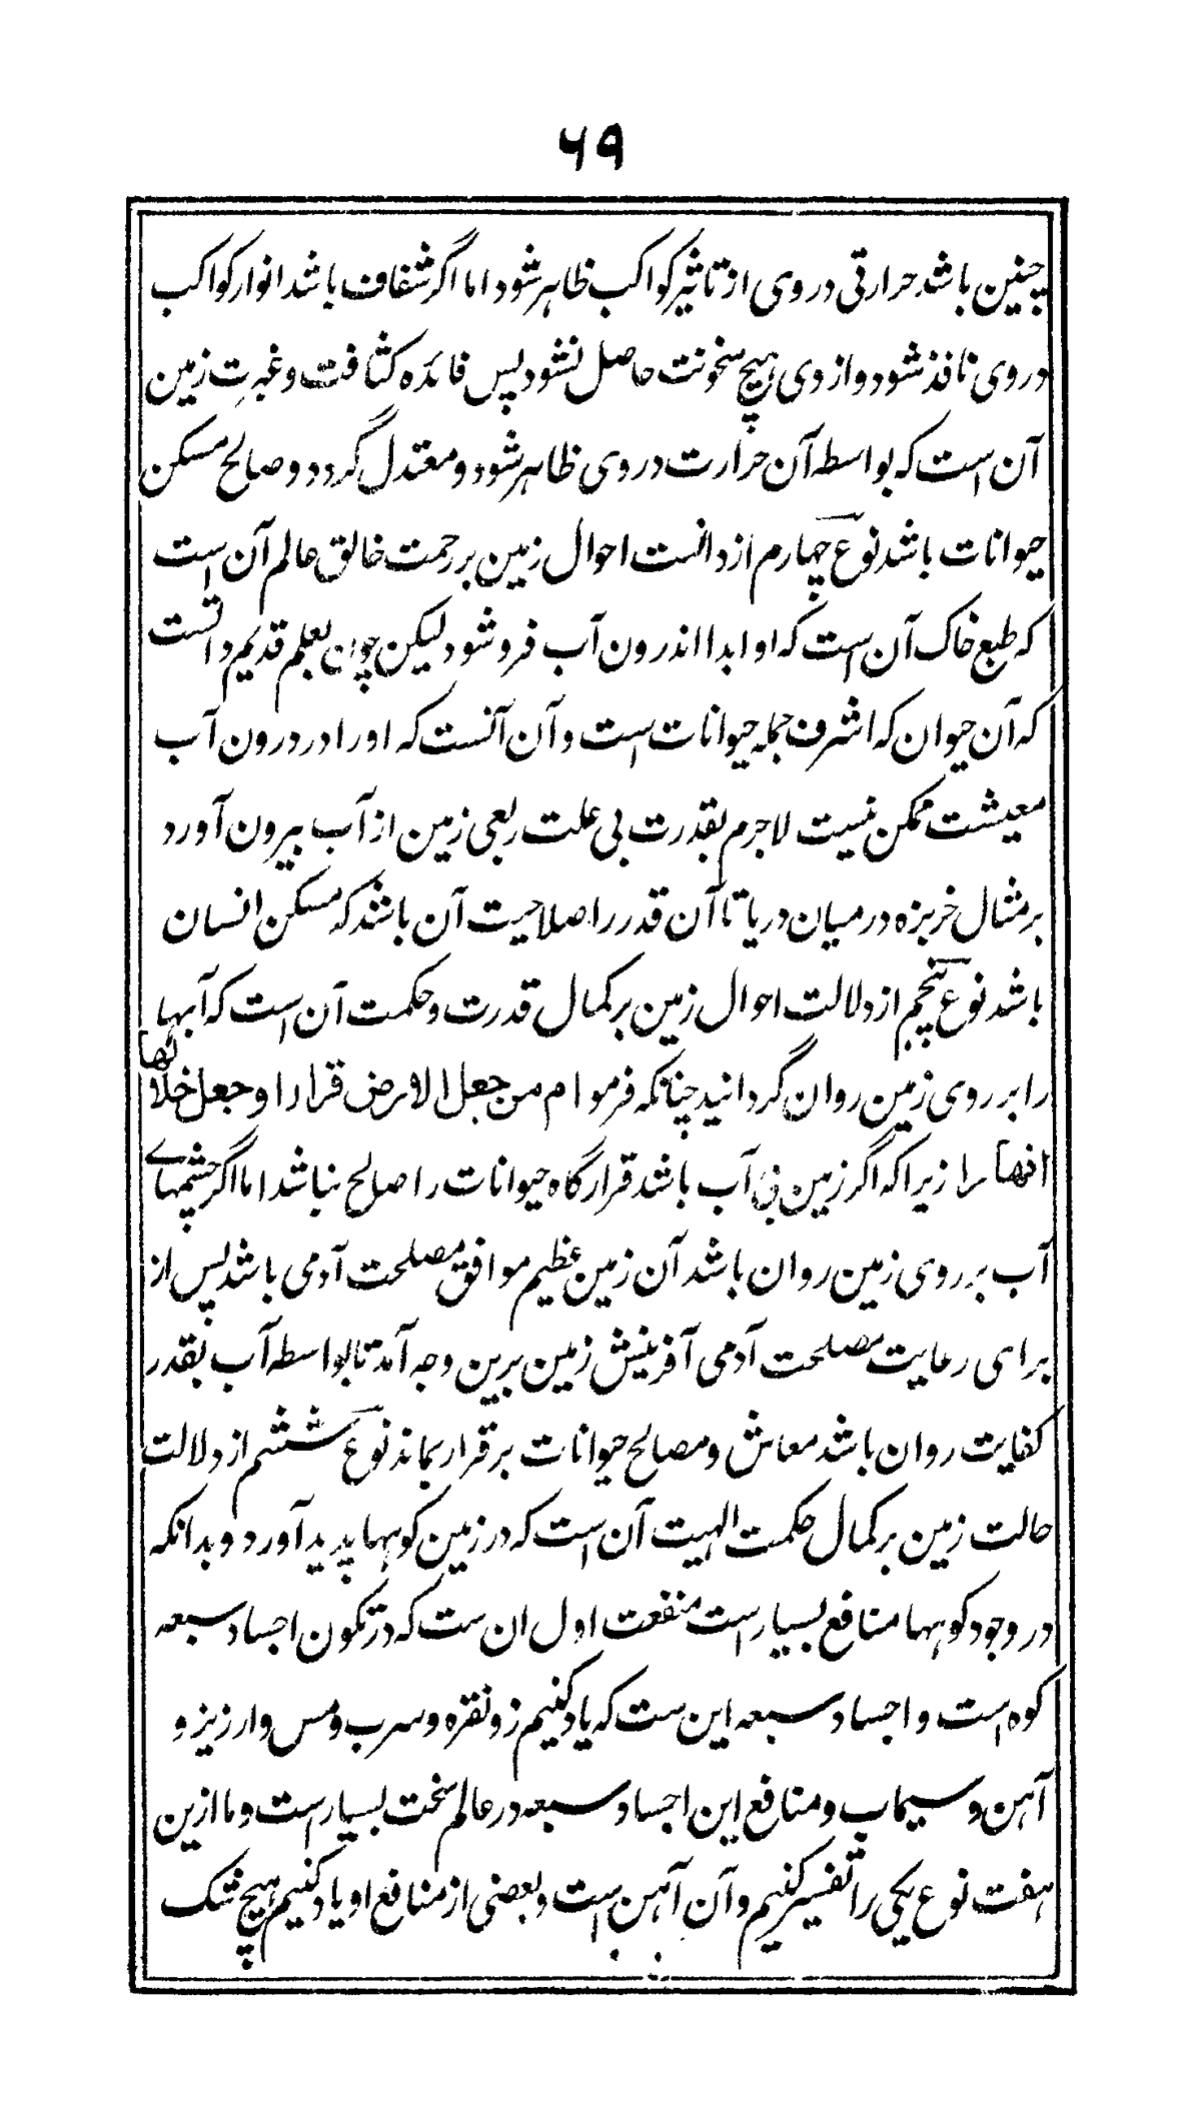 ۶۹
چنین باشد حرارتی در وی از تاثیر کواکب ظاهر شود اما اگر شفاف باشد انوار کواکب
در وی نافذ شود و از وی هیچ سخونت حاصل نشود پس فائده کثافت و غبرتِ زمین
آن است که بواسطه آن حرارت در وی ظاهر شود و معتدل گردد و صالح مسکن
حیوانات باشد نوع چهارم از دانست احوال زمین بر رحمت خالق عالم آن است
که طبع خاک آن است که او ابدا اندرون آب فرو شود لیکن چون بعلم قدیم دانست
که آن حیوان که اشرف جمله حیوانات است و آن آنست که اورا در درون آب
معیشت ممکن نیست لاجرم بقدرت بی علت ربعی زمین از آب بیرون آورد
بر مثال خربزه در میان دریا تا آن قدر را صلاحیت آن باشد که مسکن انسان
باشد نوع پنجم از دلالت احوال زمین بر کمال قدرت و حکمت آن است که آبها
را بر روی زمین روان گردانید چنانکه فرمود ام من جعل الارض قرارا وجعل خلالها
انهارا زیرا که اگر زمین بی آب باشد قرارگاه حیوانات را صالح نباشد اما اگر چشمهاے
آب بر روی زمین روان باشد آن زمین عظیم موافق مصلحت آدمی باشد پس از
برای رعایت مصلحت آدمی آفرینش زمین برین وجه آمد تا بواسطه آب بقدر
کفایت روان باشد معاش و مصالح حیوانات برقرار بماند نوع ششم از دلالت
حالت زمین بر کمال حکمت الهیت آن است که در زمین کوهها پدید آورد و بدانکه
در وجود کوهها منافع بسیار است منفعت اول ان ست که در تکون اجساد سبعه
کوه است و اجساد سبعه این ست که یاد کنیم زو نقره و سرب و مس و ارزیز و
آهن و سیماب و منافع این اجساد سبعه در عالم سخت بسیار است و ما ازین
هفت نوع یکی را تفسیر کنیم و آن آهن است و بعضی از منافع او یاد کنیم هیچ شک